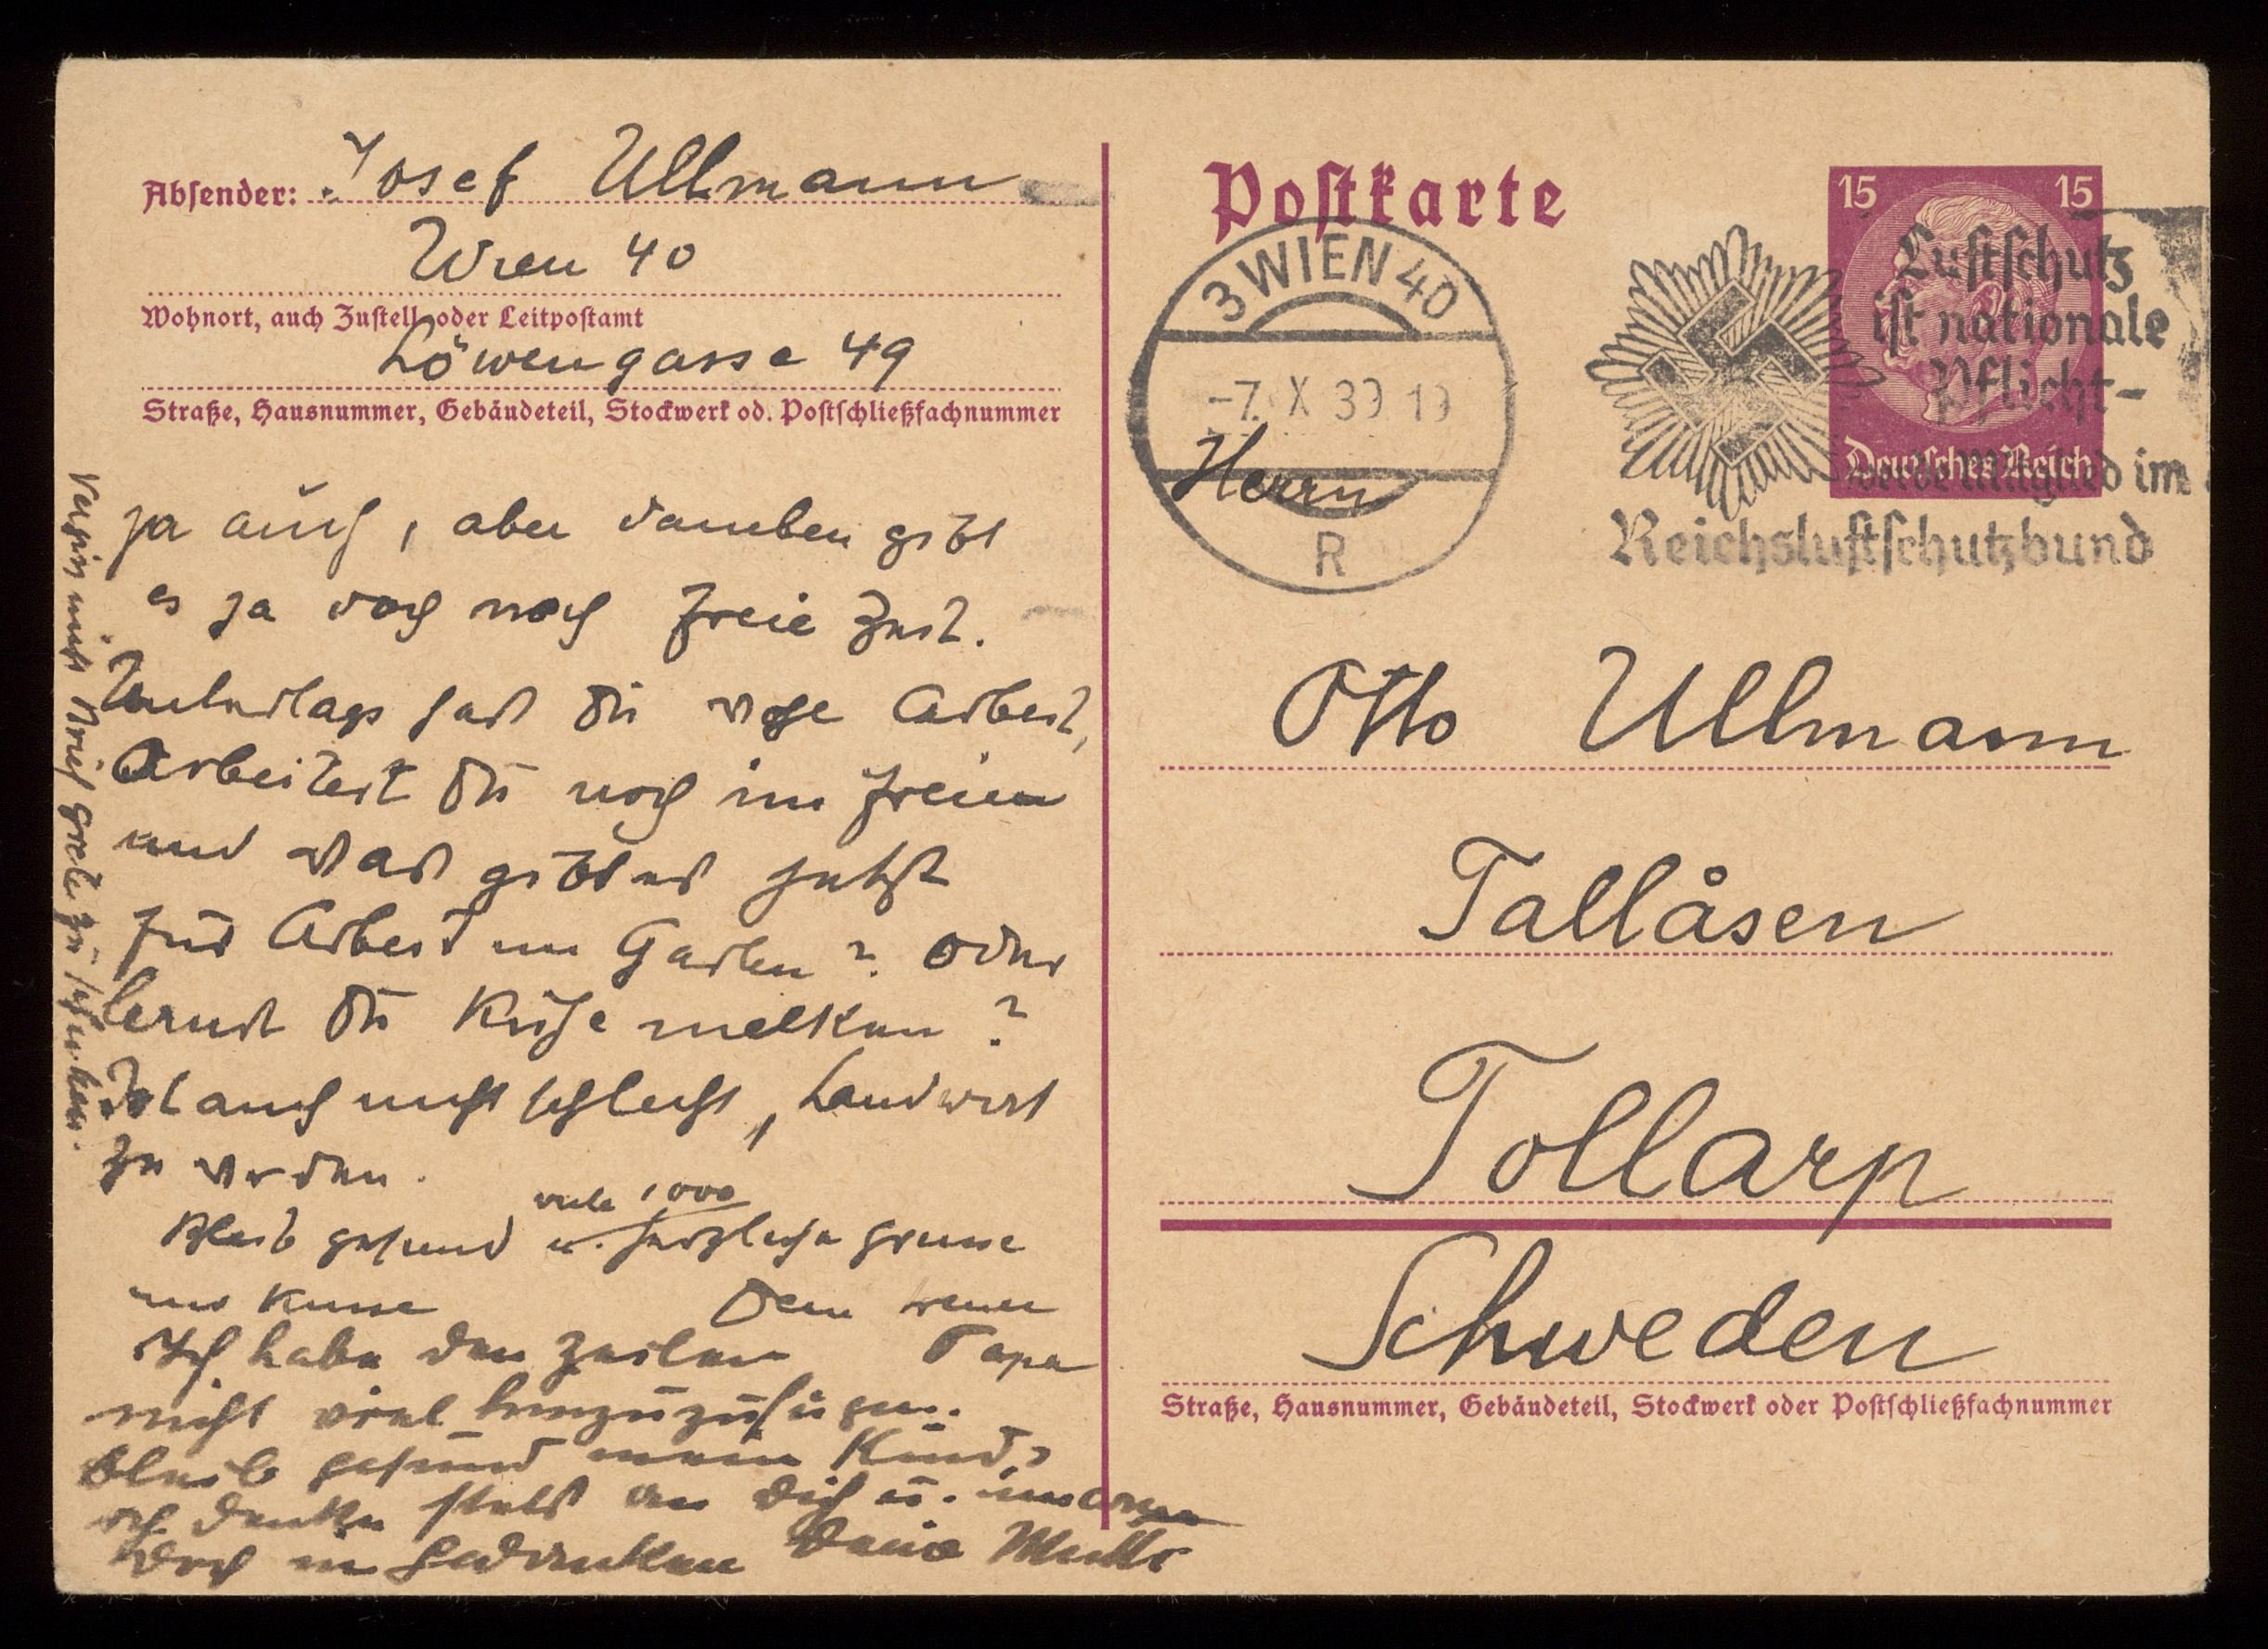 Absender: Josef Ullmann
Wien 40
Wohnort, auch Zustell- oder Leitpostamt
Löwengasse 49
Straße, Hausnummer, Gebäudeteil, Stockwerk od. Postschließfachnummer
ja auch, aber daneben gibt
es ja doch noch freie Zeit.
hast Du Arbeit,
Arbeitest Du noch im Freien
und was gibt es jetzt
für Arbeit im Garten? Oder
lernst Du Kühe melken?
Ist auch nicht schlecht, Landwirt
zu werden.
viele 1000
Bleib gesund u. herzliche Grüsse
und Küsse Dein treuer
Papa
Ich habe den Zeilen
nicht viel hinzuzufügen.
Bleib gesund mein Kind,
ich denke stets an Dich u. umarme
Dich in Gedanken Deine Mutti
Vergiss nicht Brief zu schicken.
Postkarte
15 15
Deutsches Reich
3 WIEN 40
-7. X 39 19
R
Luftschutz
ist nationale
Pflicht-
werde Mitglied im
Reichsluftschutzbund
Herrn
Otto Ullmann
Tallåsen
Tollarp
Schweden
Straße, Hausnummer, Gebäudeteil, Stockwerk oder Postschließfachnummer